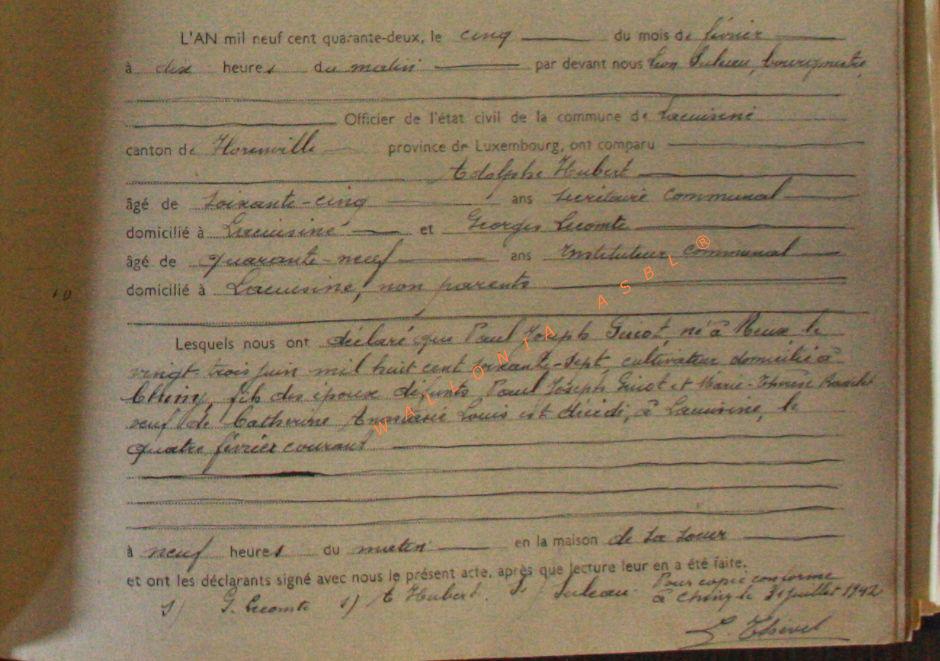 L'AN mil neuf cent quarante-deux, le cinq du mois de février
à dix heures du matin par devant nous Léon Suleau, bourgmestre,
Officier de l'état civil de la commune de Lacuisine
canton de Florenville province de Luxembourg, ont comparu
Adolphe Hubert
âgé de soixante-cinq ans secrétaire communal
domicilié à Lacuisine et Georges Lecomte
âgé de quarante-neuf ans Instituteur communal
domicilié à Lacuisine, non parents
10
Lesquels nous ont déclaré que Paul Joseph Guiot, né à le
vingt trois juin mil huit cent soixante-sept, cultivateur domicilié à
Chiny, fils des époux défunts Paul Joseph Guiot et Marie-Thérèse
veuf de Catherine Anastasie Louis est décédé, à Lacuisine, le
quatre février courant
à neuf heures du matin en la maison de sa soeur
et ont les déclarants signé avec nous le présent acte, après que lecture leur en a été faite.
s) G. Lecomte s) A Hubert. s) Suleau. Pour copie conforme
à Chiny le 31 juillet 1942
WALONIA ASBL ®